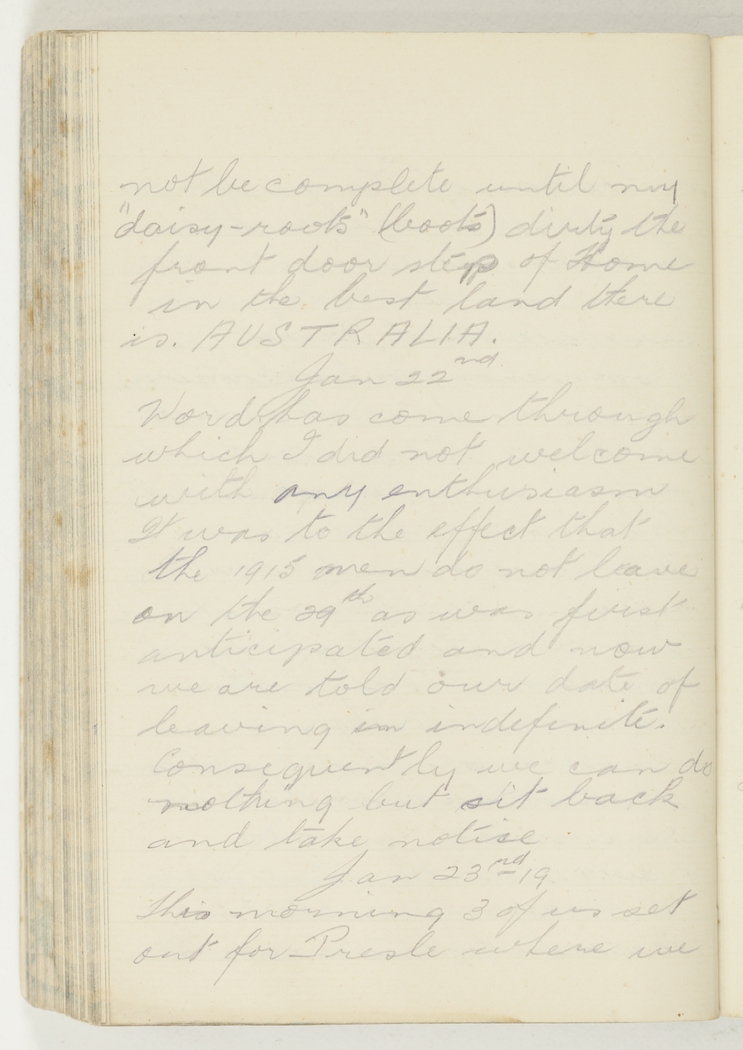 not be complete until my
"daisy-roots" (boots) dirty the
front door step of Home
in the best land there
is. AUSTRALIA.
Jan 22nd
Word has come through
which I did not welcome
with any enthusiasm
It was to the effect that
the 1915 men do not leave
on the 29th as was first
anticipated and now
we are told our date of
leaving is indefinite.
Consequently we can do
nothing but sit back
and take notise
Jan 23nd-19.
This morning 3 of us set
out for Presle where we